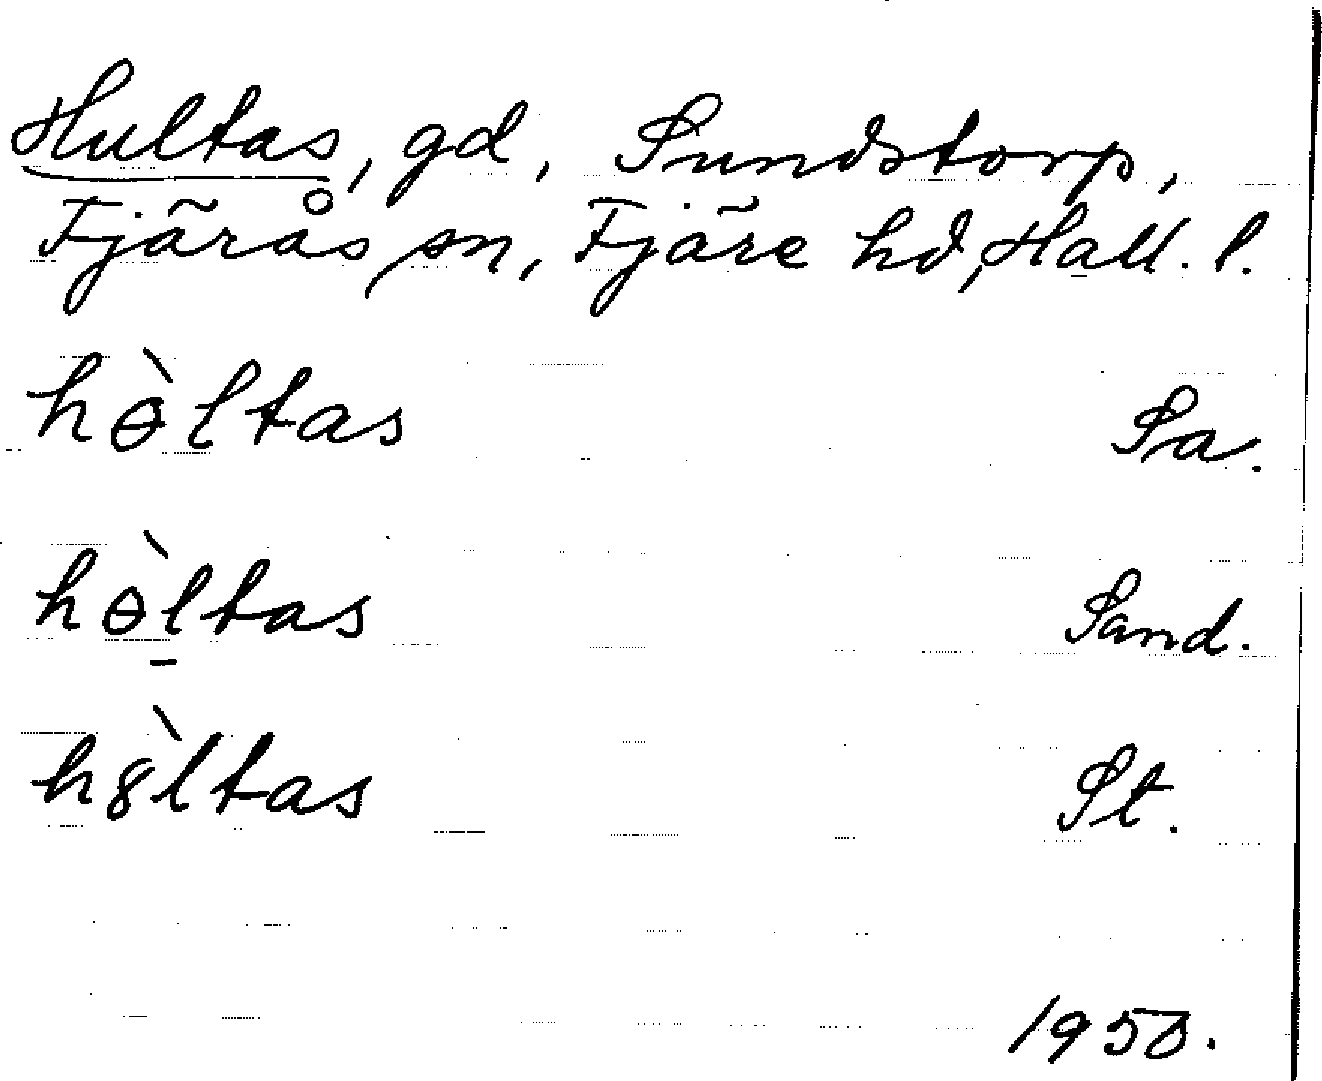 Hultas, gd, Sundstorp,
Fjärås sn, Fjäre hd, Hall. l.
hɵ̀ltas Sa.
hɵ̀ltas Sand.
h8̀ltas St.
1950.